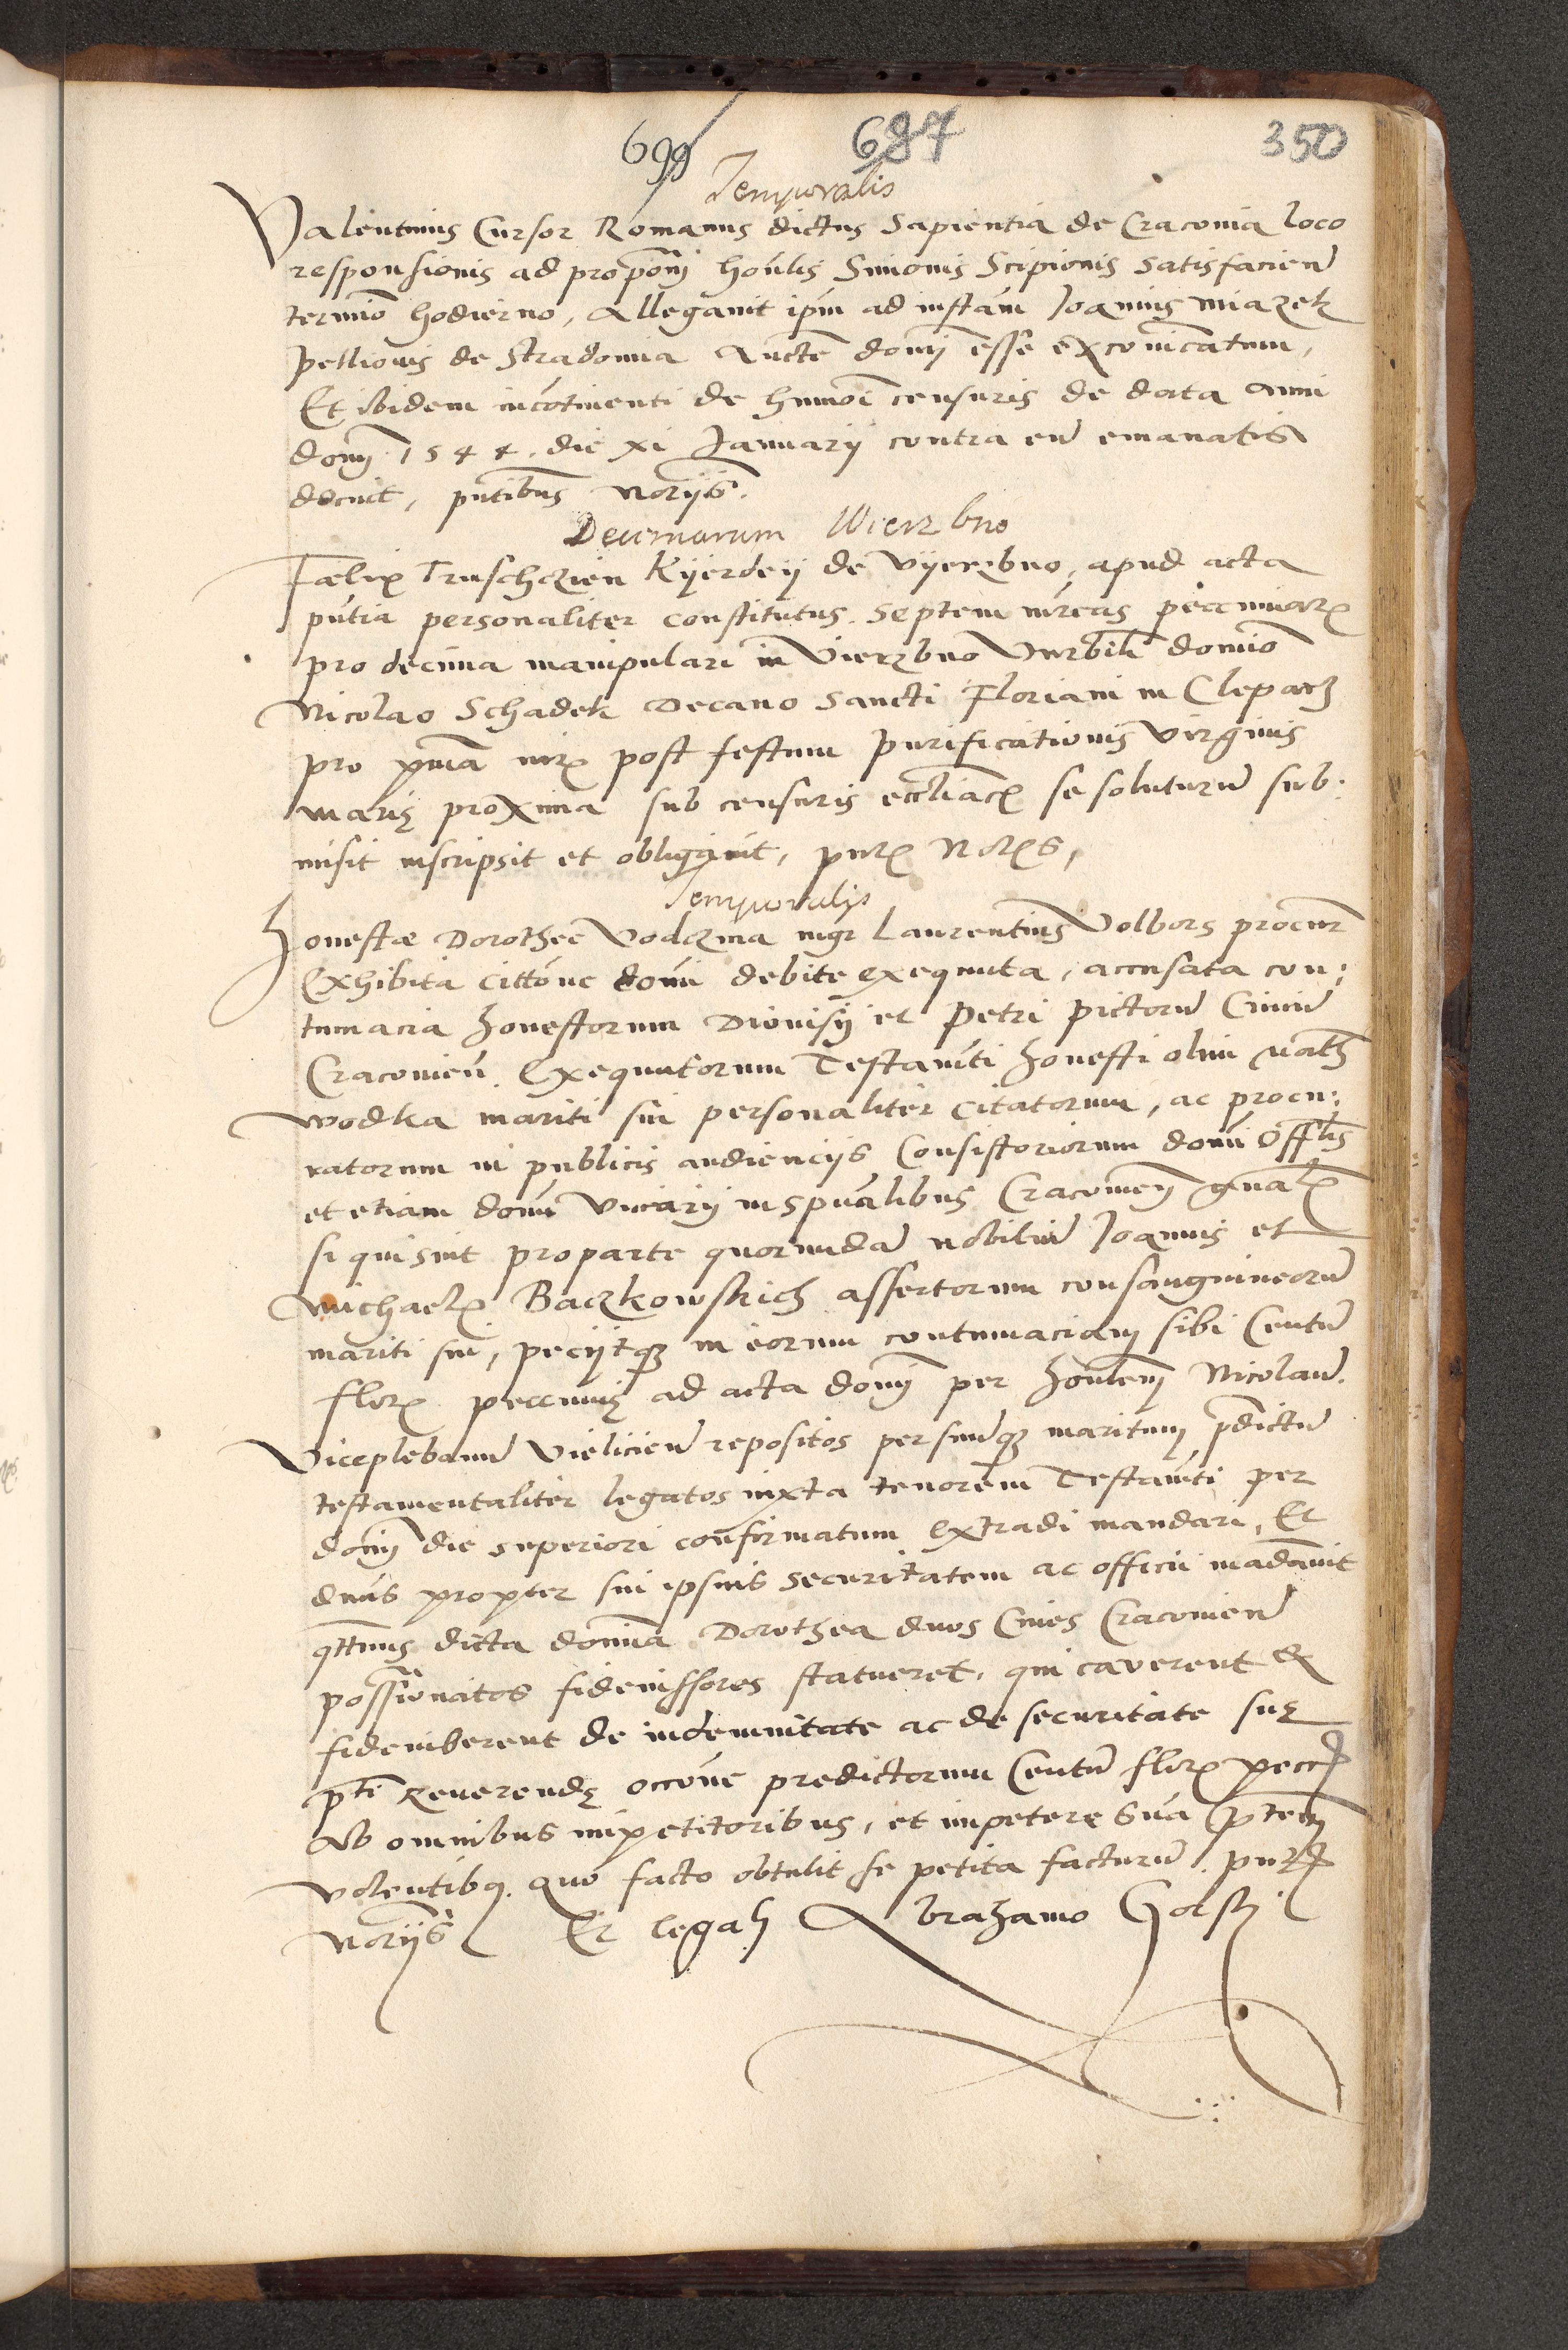 699 687 350
Temporalis
Valentinus Cursor Romanus dictus Sapientia de Cracovia loco
responsionis ad propoōnē hoūlis Simonis Scipionis satisfacień
termīo hodierno, allegavit ipm̄ ad instām Joannis miazek
pellionis de Stradomia Aucte dom̄ esse excoīcatum,
Et ibidem incōtinenti de hmōi censuris de data anni
dom̄ 1544. die xi Januarij contra eū emanatis
docuit, pn̄tibus Norijs.
Decimarum Wierzbno
Fælix Kijerdeij de Vyerzbno, apud acta
pn̄tia personaliter constitutus. Septem mrcas pecuniar̄
pro decima manipulari in Vierzbno Vnrbili domīo
Nicolao Schadek Decano Sancti Floriani in Clepar̄
pro post festum Purificationis Virginis
marię proxima sub censuris eccliacꝫ se soluturū sub:
misit inscripsit et obligavit, pn̄tꝫ Norꝫs,
Temporalis
Honestæ Dorothee Vodczina mgr Laurentius Volbors procur̄
Exhibita cittōne domī debite exequuta, accusata con:
tumacia honestorum Dionisij et Petri pictorū Civiū
Cracovień. Exequutorum Testam̄ti honesti olim math̄
wodka mariti sui personaliter citatorum, ac procu:
ratorum in publicis audiencijs Consistoriorum domī Offlis
et etiam domī Vicarij in spūalibus Cracovień gnalꝫ
si qui sint pro parte quorundā nobiliū Joannis et
michaelꝫ Baczkowskich assertorum consanguineorū
mariti sui, pecijtqꝫ in eorum contumaciam sibi Centū
florꝫ pecunię ad acta dom̄ per honlem Nicolaū
Viceplebanū Vieliciē repositos per suūqꝫ maritum p̄dictū
testamentaliter legatos iuxta tenorem Testam̄ti per
dom̄ die superiori confirmatum extradi mandari, Et
dn̄us propter sui ipsius securitatem ac officii mādavit
qttnus dicta domīa Dorothea duos Cives Cracovień
possionatos fideiussores statueret, qui caverent &
fideiuberent de indemnitate ac de securitate suę
p̄ti Reverendę occōne predictorum Centū florꝫ pecc
Ab omnibus impetitoribus, et impetere Sua p̄tem
volentibꝫ. quo facto obtulit se petita facturū. pn̄t
Norijs Et legah Abrahamo Golsk